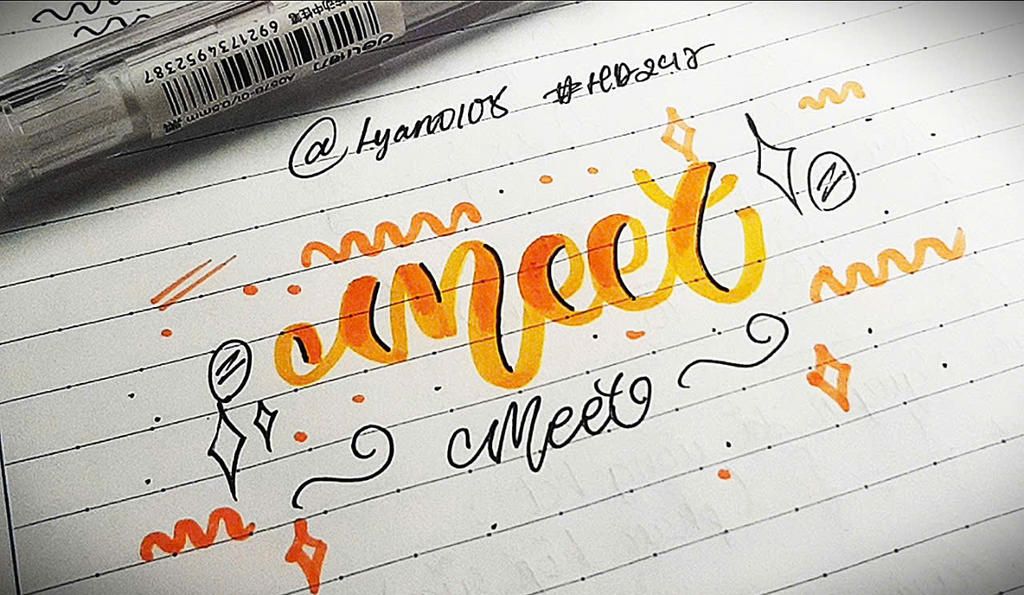 6921734952387
@Lyano108 #HD248
Meet
Meet